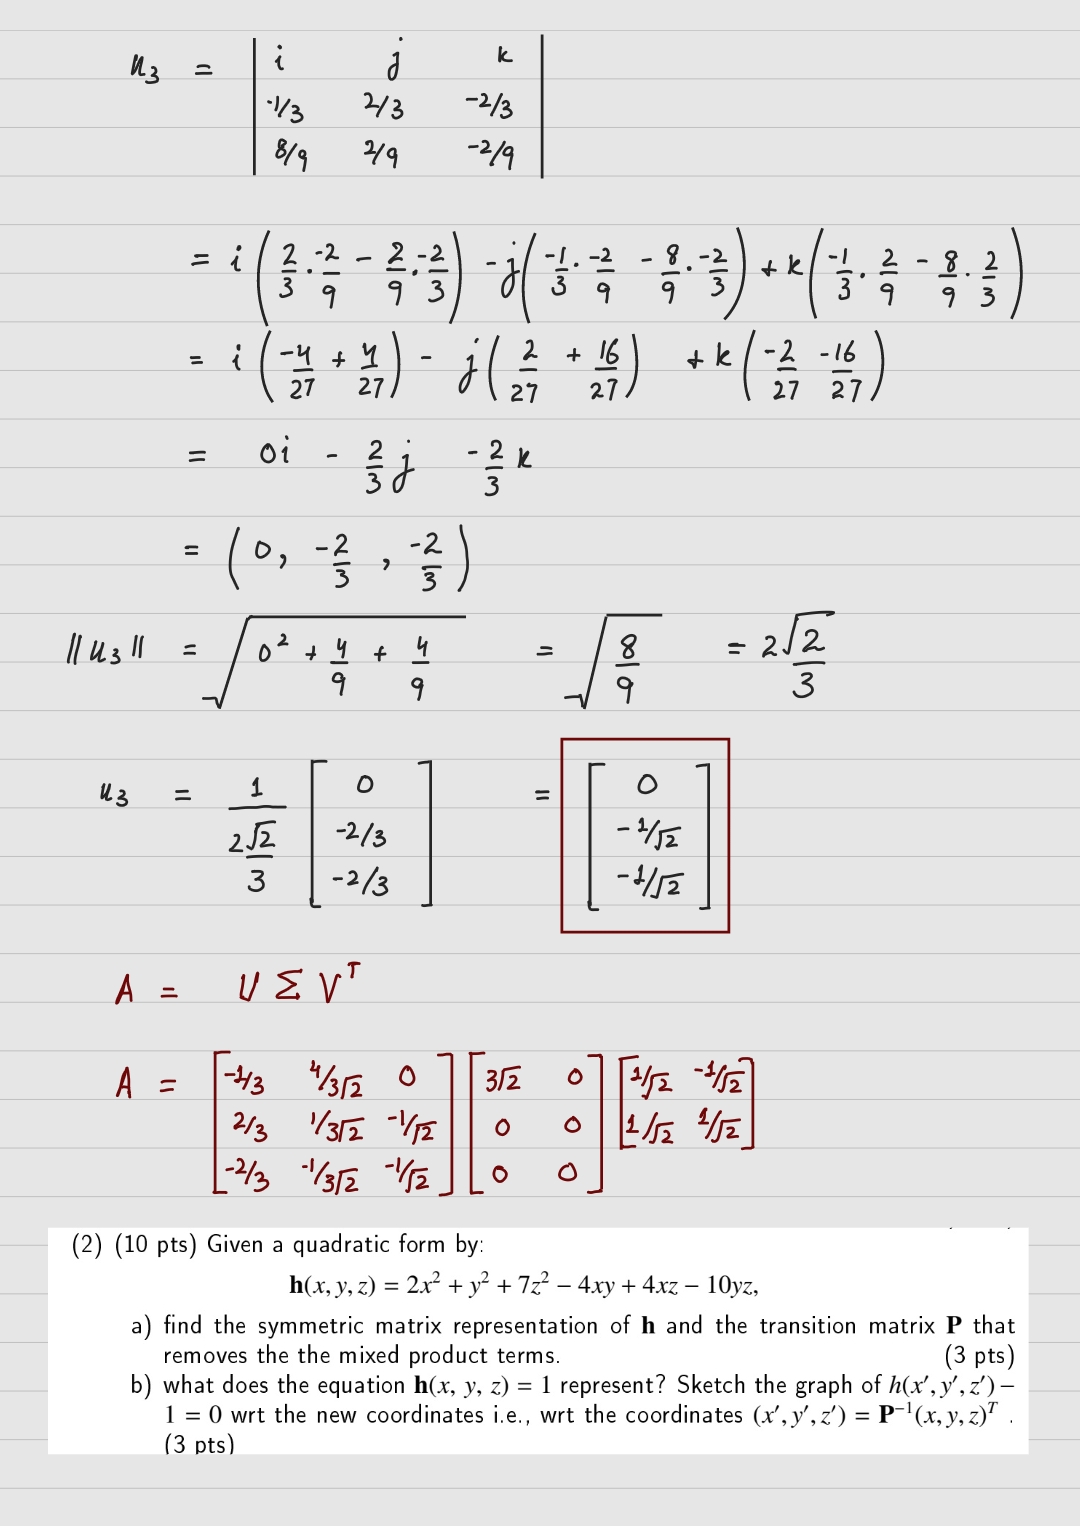 u₃ = | i j k |
| -1/3 2/3 -2/3 |
| 8/9 2/9 -2/9 |
= i (2/3 · -2/9 - 2/9 · -2/3) - j (-1/3 · -2/9 - 8/9 · -2/3) + k (-1/3 · 2/9 - 8/9 · 2/3)
= i (-4/27 + 4/27) - j (2/27 + 16/27) + k (-2/27 -16/27)
= 0i - 2/3 j -2/3 k
= (0, -2/3 , -2/3)
||u₃|| = √(0² + 4/9 + 4/9) = √(8/9) = 2√2/3
u₃ = 1/(2√2/3) [0 -2/3 -2/3] = [0 -1/√2 -1/√2]
A = U Σ Vᵀ
A = [-1/3 4/3√2 0] [3√2 0] [1/√2 -1/√2]
[2/3 1/3√2 -1/√2] [0 0] [1/√2 1/√2]
[-2/3 -1/3√2 -1/√2] [0 0]
(2) (10 pts) Given a quadratic form by:
h(x, y, z) = 2x² + y² + 7z² − 4xy + 4xz − 10yz,
a) find the symmetric matrix representation of h and the transition matrix P that
removes the the mixed product terms. (3 pts)
b) what does the equation h(x, y, z) = 1 represent? Sketch the graph of h(x′, y′, z′) −
1 = 0 wrt the new coordinates i.e., wrt the coordinates (x′, y′, z′) = P⁻¹(x, y, z)ᵀ .
(3 pts)